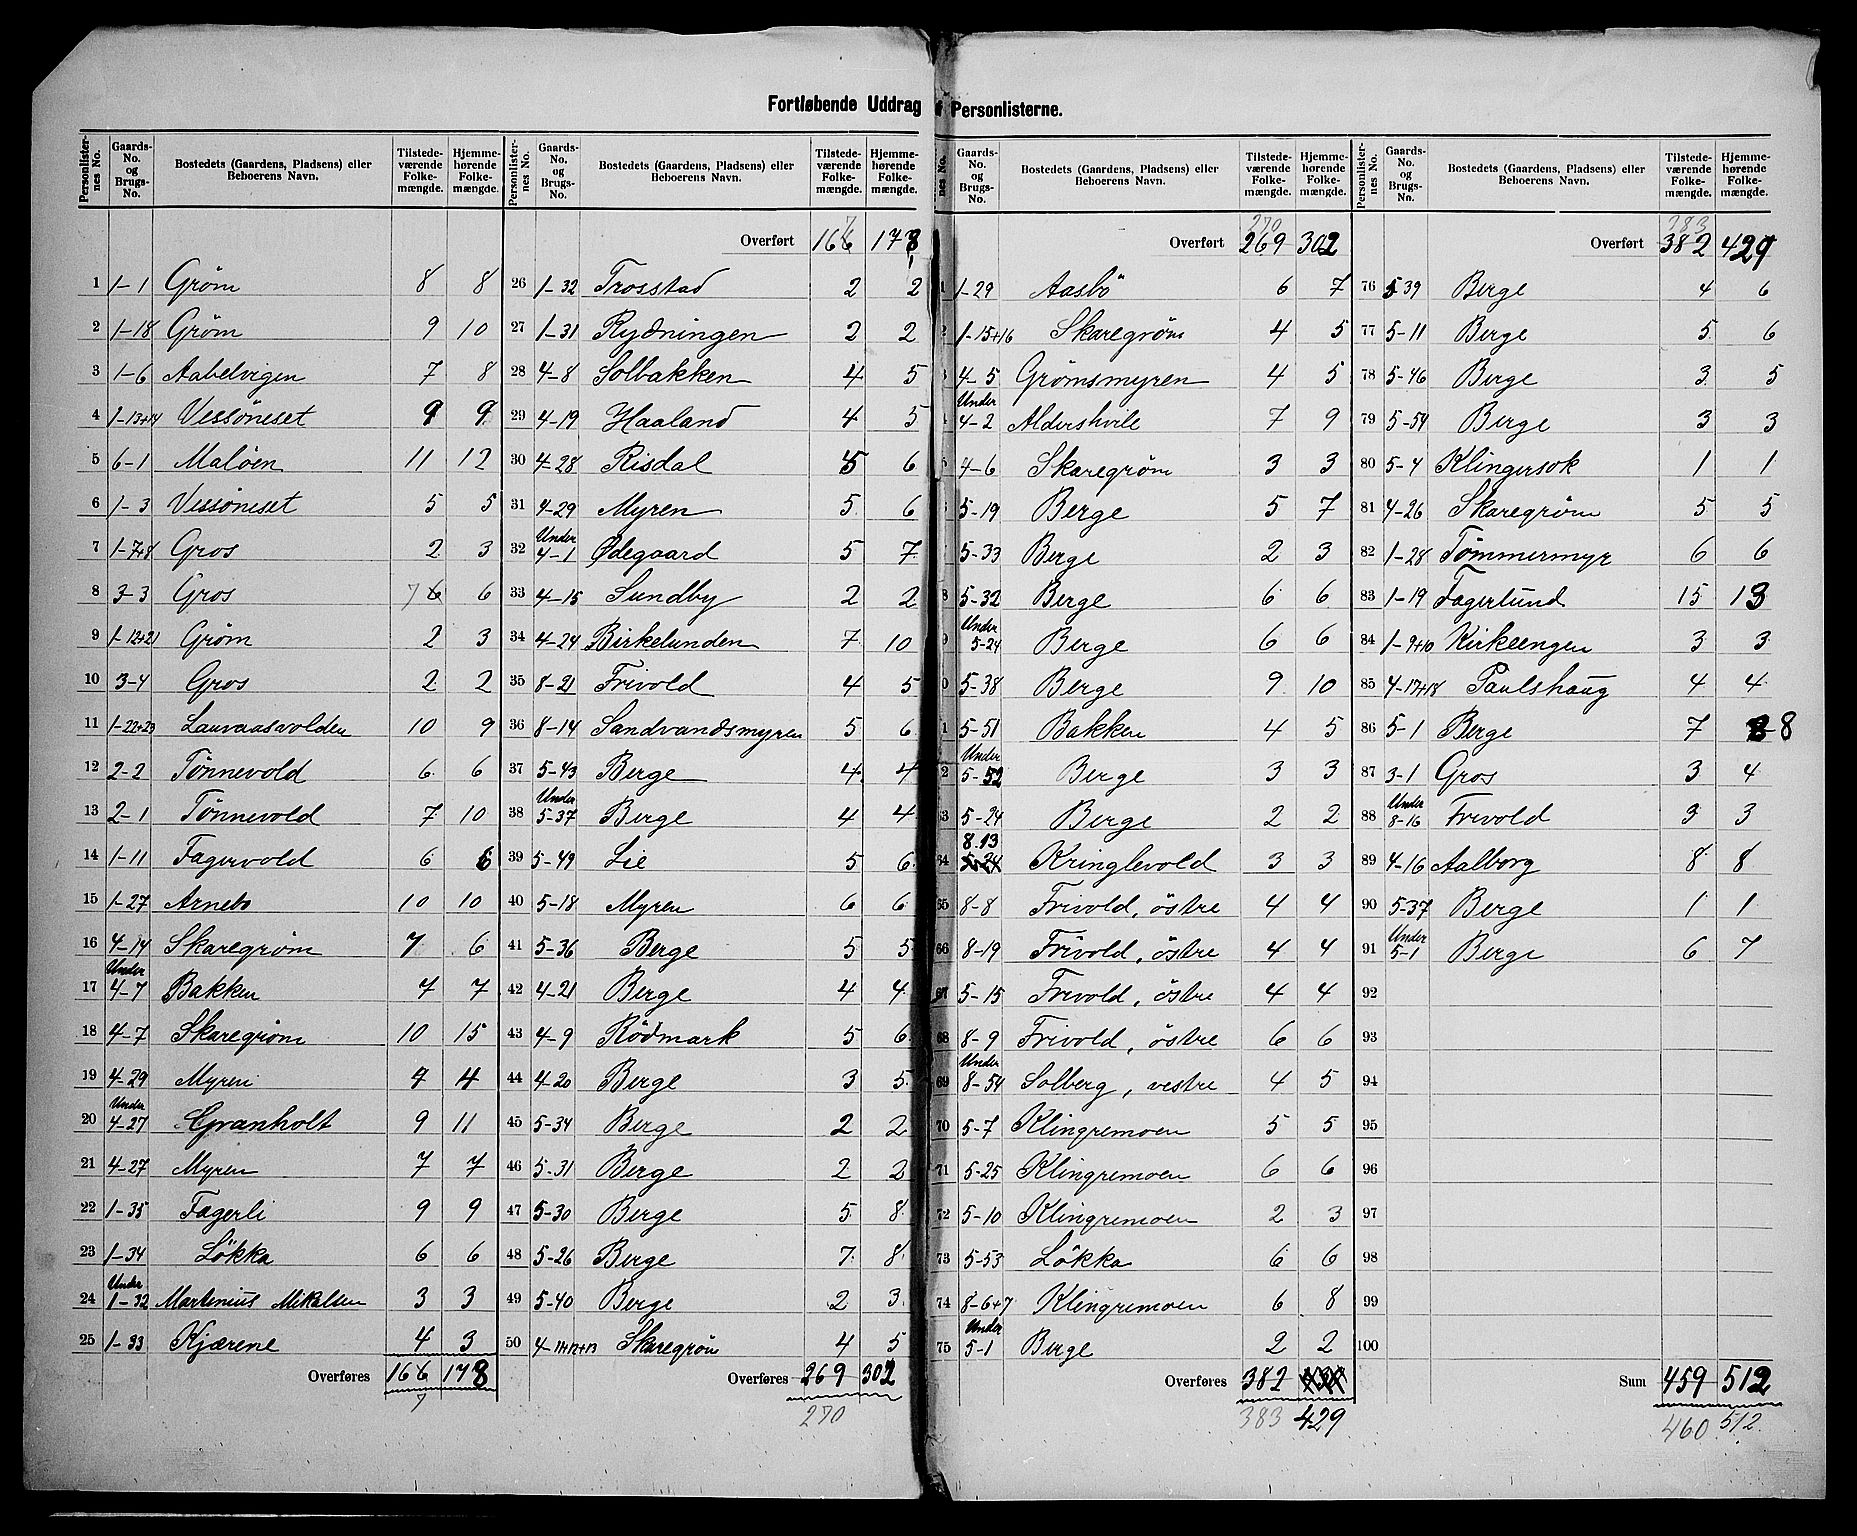 Fortløbende Uddrag f Personlisterne.
Personlisternes No. | Gaards-No. og Brugs-No. | Bostedets (Gaardens, Pladsens) eller Beboerens Navn. | Tilstedeværende Folkemængde. | Hjemmehørende Folkemængde.
1 1-1 Grøm 8 8
2 1-18 Grøm 9 10
3 1-6 Aabelvigen 7 8
4 1-13+14 Vessøneset 9 9
5 6-1 Maløen 11 12
6 1-3 Vessøneset 5 5
7 1-7+8 Gros 2 3
8 3-3 Gros 7 6 6
9 1-12+21 Grøm 2 3
10 3-4 Gros 2 2
11 1-22+23 Lauvaasvolden 10 9
12 2-2 Tønnevold 6 6
13 2-1 Tønnevold 7 10
14 1-11 Fagervold 6 6
15 1-27 Arnebo 10 10
16 4-14 Skaregrøm 7 6
17 Under 4-7 Bakken 7 7
18 4-7 Skaregrøm 10 15
19 4-29 Myren 4 4
20 Under 4-27 Granholt 9 11
21 4-27 Myren 7 7
22 1-35 Fagerli 9 9
23 1-34 Løkka 6 6
24 Under 1-32 Martinius Mikalsen 3 3
25 1-33 Kjærene 4 3
Overføres 166 178
7
Personlisternes No. | Gaards-No. og Brugs-No. | Bostedets (Gaardens, Pladsens) eller Beboerens Navn. | Tilstedeværende Folkemængde. | Hjemmehørende Folkemængde.
7
Overført 166 178
26 1-32 Trosstad 2 2
27 1-31 Rydningen 2 2
28 4-8 Solbakken 4 5
29 4-19 Haaland 4 5
30 4-28 Risdal 5 6
31 4-29 Myren 5 6
32 Under 4-1 Ødegaard 5 7
33 4-15 Sundby 2 2
34 4-24 Birkelunden 7 10
35 8-21 Frivold 4 5
36 8-14 Sandvandsmyren 5 6
37 5-43 Berge 4 4
38 Under 5-37 Berge 4 4
39 5-49 Lie 5 6
40 5-18 Myren 6 6
41 5-36 Berge 5 5
42 4-21 Berge 4 4
43 4-9 Rödmark 5 6
44 4-20 Berge 3 5
45 5-34 Berge 2 2
46 5-31 Berge 2 2
47 5-30 Berge 5 8
48 5-26 Berge 7 8
49 5-40 Berge 2 3
50 4-11+12+13 Skaregrøm 4 5
Overføres 269 302
270
nes No. | Gaards-No. og Brugs-No. | Bostedets (Gaardens, Pladsens) eller Beboerens Navn. | Tilstedeværende Folkemængde. | Hjemmehørende Folkemængde.
270
Overført 269 302
1 1-29 Aasbö 6 7
2 1-15+16 Skaregrøm 4 5
3 4-5 Grømsmyren 4 5
4 Under 4-2 Aldershvile 7 9
5 4-6 Skaregrøm 3 3
6 5-19 Berge 5 7
5-33 Berge 2 3
8 5-32 Berge 6 6
9 Under 5-24 Berge 6 6
0 5-38 Berge 9 10
1 5-51 Bakken 4 5
2 Under 5-52 Berge 3 3
3 5-24 Berge 2 2
64 8.13 5-24 Kringlevold 3 3
65 8-8 Frivold, östre 4 4
66 8-19 Frivold, östre 4 4
67 5-15 Frivold, östre 4 4
68 8-9 Frivold, östre 6 6
69 Under 8-54 Solberg, vestre 4 5
70 5-7 Klingremoen 5 5
71 5-25 Klingremoen 6 6
72 5-10 Klingremoen 2 3
73 5-53 Løkka 6 6
74 8-6+7 Klingremoen 6 8
75 Under 5-1 Berge 2 2
Overføres 382
383 429
Personlisternes No. | Gaards-No. og Brugs-No. | Bostedets (Gaardens, Pladsens) eller Beboerens Navn. | Tilstedeværende Folkemængde. | Hjemmehørende Folkemængde.
383
Overført 382 429
76 5-39 Berge 4 6
77 5-11 Berge 5 6
78 5-46 Berge 3 5
79 5-54 Berge 3 3
80 5-4 Klingersok 1 1
81 4-26 Skaregrøm 5 5
82 1-28 Tömmermyr 6 6
83 1-19 Fagerlund 15 13
84 1-9+10 Kirkeengen 3 3
85 4-17+18 Paulshaug 4 4
86 5-1 Berge 7 8
87 3-1 Gros 3 4
88 Under 8-16 Frivold 3 3
89 4-16 Aalborg 8 8
90 5-37 Berge 1 1
91 Under 5-1 Berge 6 7
92
93
94
95
96
97
98
99
100
Sum 459 512
460 512